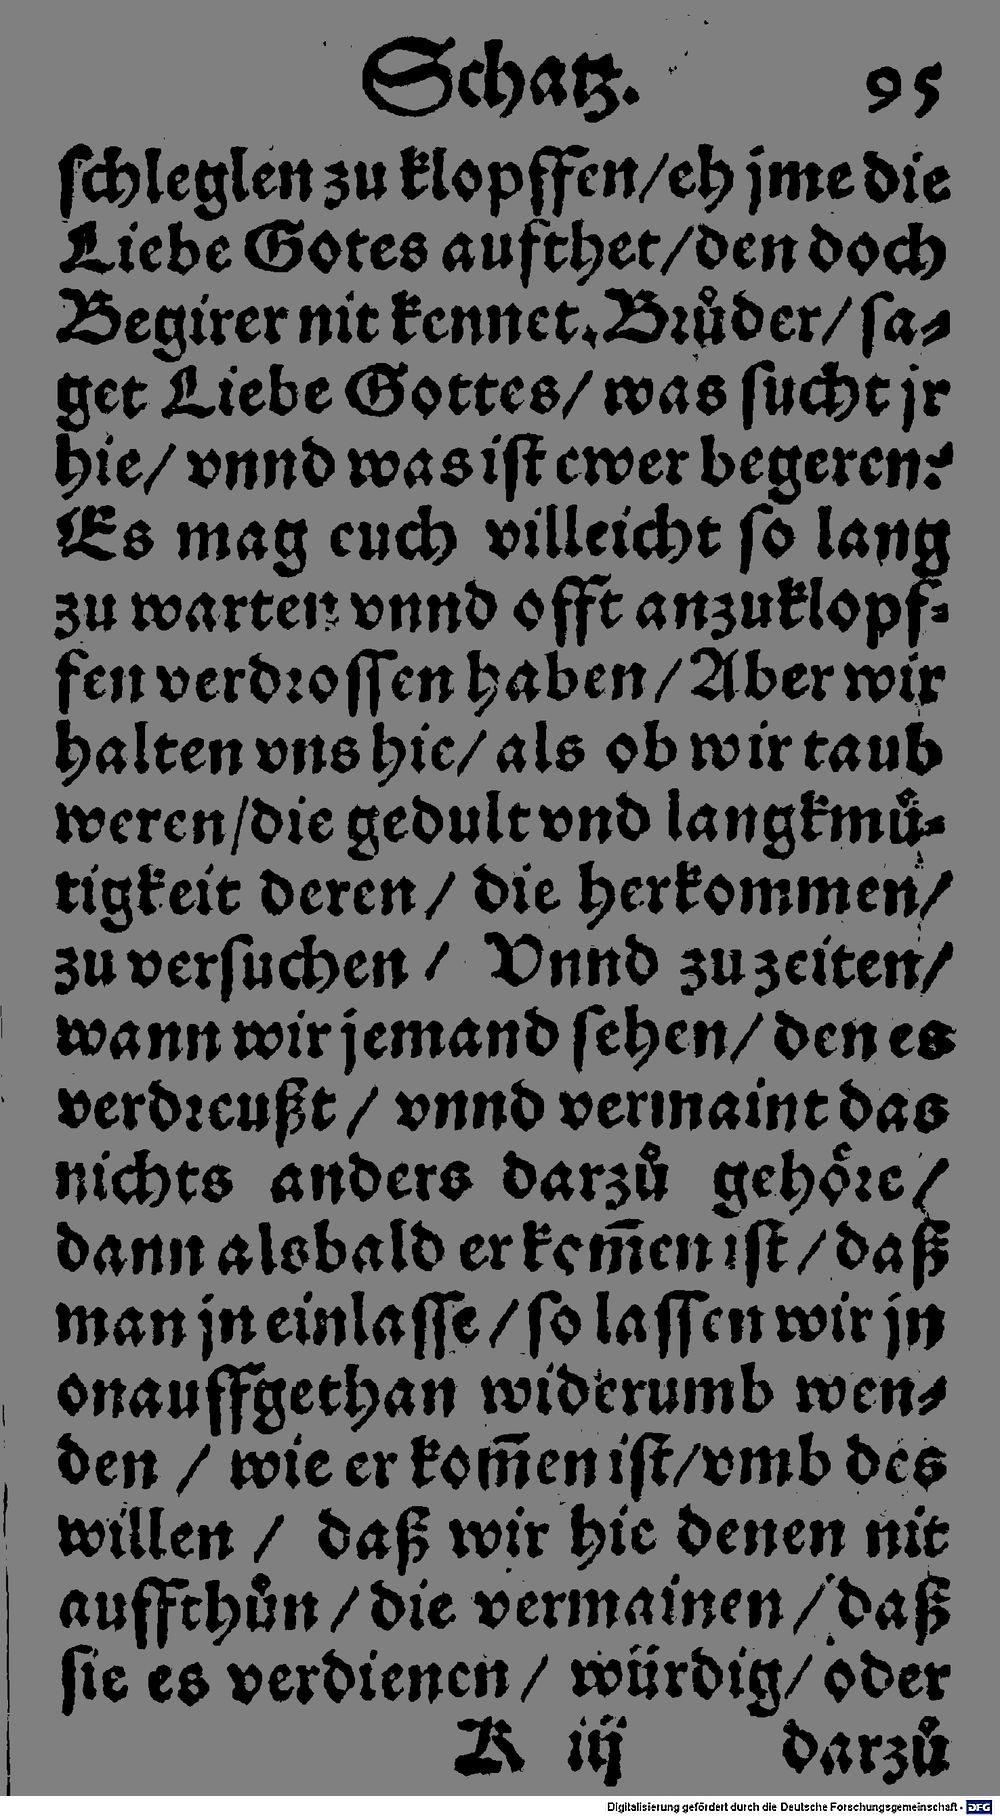 Schatz. 95
ſchleglen zu klopffen/eh jme die
Liebe Gotes aufthet/den doch
Begirer nit kennet. Bruͦder/ ſa⸗
get Liebe Gottes/ was ſucht jr
hie/ vnnd was iſt ewer begeren?
Es mag euch villeicht ſo lang
zu warten vnnd offt anzuklopf⸗
fen verdroſſen haben/Aber wir
halten vns hie/als ob wir taub
weren/die gedult vnd langkmuͦ⸗
tigkeit deren/ die herkommen/
zu verſuchen/ Vnnd zu zeiten/
wann wir jemand ſehen/ den es
verdreuſzt/ vnnd vermaint das
nichts anders darzuͦ gehoͤre/
dann alsbald er kom̄en iſt/daſz
man jn einlaſſe/ſo laſſen wir jn
onauffgethan widerumb wen⸗
den/ wie er kom̄en iſt/vmb des
willen/ daſz wir hie denen nit
auffthuͦn/die vermainen/daſz
ſie es verdienen/ würdig/ oder
K iij darzuͦ
Digitalisierung gefördert durch die Deutsche Forschungsgemeinschaft - DFG